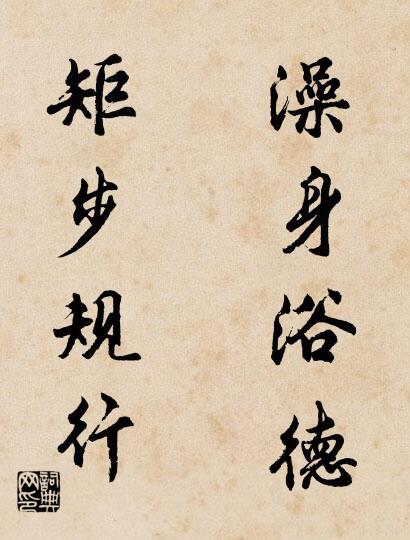 澡身浴德
矩步规行
詞典网印